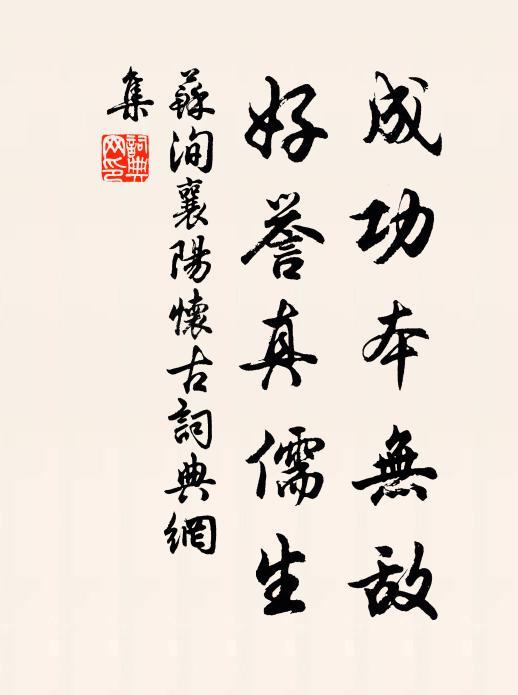 成功本無敵
好譽真儒生
蘇洵襄陽懷古詞典網
集
詞典
網印